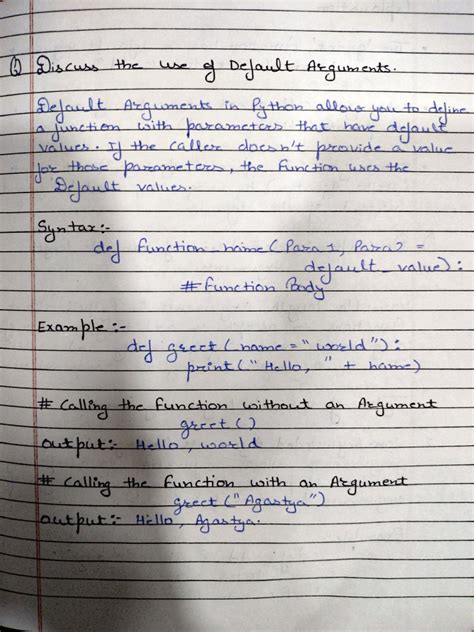 Q Discuss the use of Default Arguments.
Default Arguments in Python allows you to define
a function with parameters that have default
values. If the caller doesn't provide a value
for those parameters, the function uses the
Default values.
Syntax:-
def function_name(Para1, Para2 =
default_value):
#Function Body
Example :-
def greet(name="world"):
print("Hello, " + name)
# Calling the function without an Argument
greet()
output:- Hello, world
# Calling the function with an Argument
greet("Agastya")
output:- Hello, Agastya.